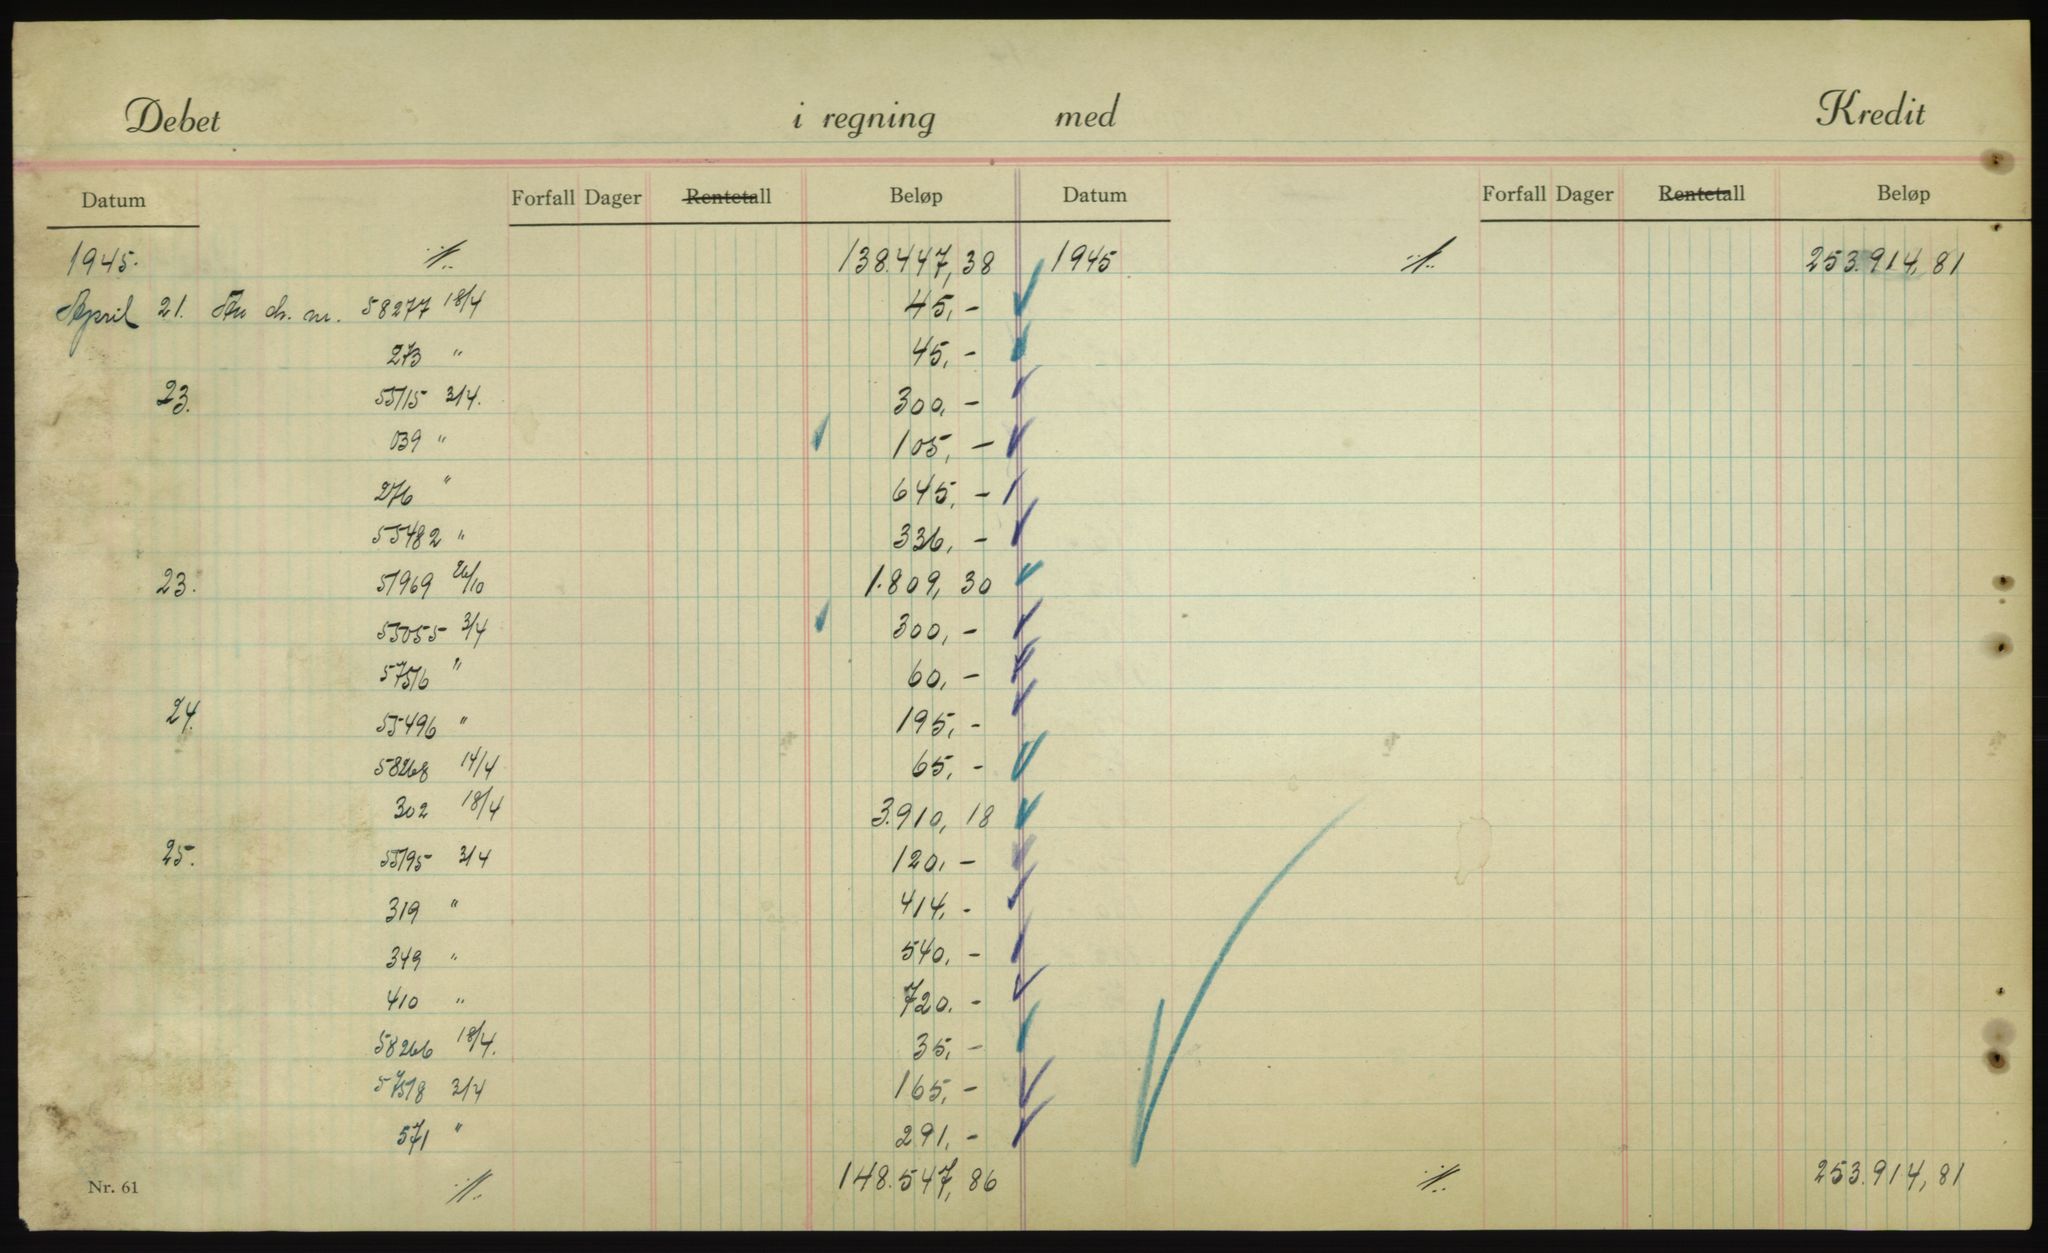 Debet i regning med Kredit
Datum Forfall Dager Rentetall Beløp Datum Forfall Dager Rentetall Beløp
1945. ·//· 138.447,38 1945 ·//· 253.914,81
April 21. An ch. nr. 58277 18/4 45,-
273 " 45,-
23. 55715 3/4. 300,-
039 " 105,-
276 " 645,-
55482 " 336,-
23. 51969 26/10 1.809,30
55055 3/4 300,-
57516 " 60,-
24. 55496 " 195,-
58268 14/4 65,-
302 18/4 3.910,18
25. 55195 3/4 120,-
319 " 414,-
349 " 540,-
410 " 720,-
58266 18/4. 35,-
57518 3/4 165,-
571 " 291,-
Nr. 61 ·//· 148.547,86 ·//· 253.914,81